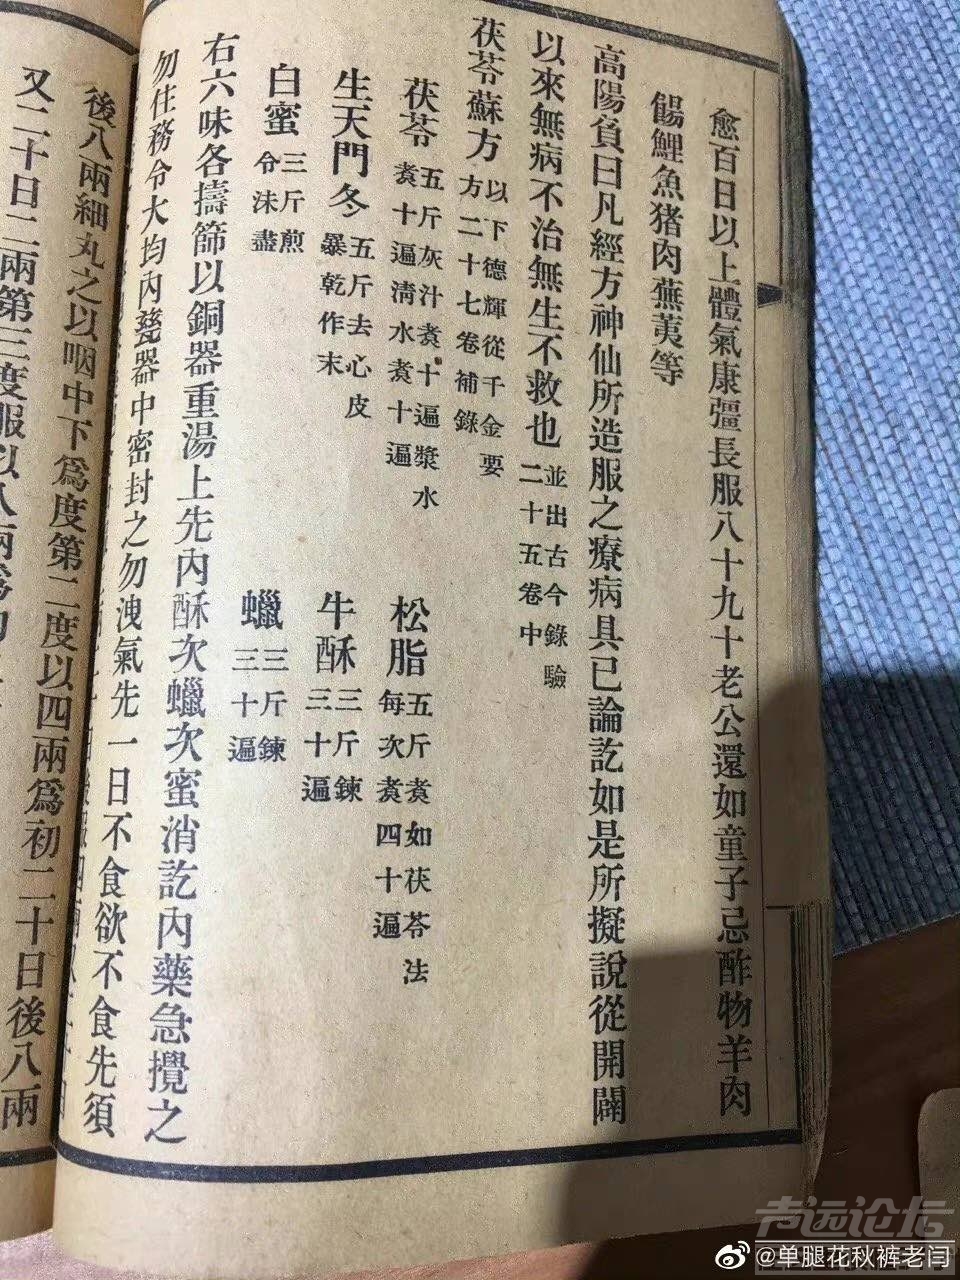 愈百日以上體氣康彊長服八十九十老公還如童子忌酢物羊肉
餳鯉魚猪肉蕪荑等
高陽負曰凡經方神仙所造服之療病具已論訖如是所擬說從開闢
以來無病不治無生不救也並出古今錄驗二十五卷中
茯苓蘇方以下德輝從千金要方二十七卷補錄
茯苓五斤灰汁煑十遍漿水煑十遍清水煑十遍
松脂五斤煑如茯苓法每次煑四十遍
生天門冬五斤去心皮暴乾作末
牛酥三斤鍊三十遍
白蜜三斤煎令沫盡
蠟三斤鍊三十遍
右六味各擣篩以銅器重湯上先內酥次蠟次蜜消訖內藥急攪之
勿住務令大均內甆器中密封之勿洩氣先一日不食欲不食先須
後八兩細丸之以咽中下爲度第二度以四兩爲初二十日後八兩
又二十日二兩第三度服以八兩爲初
声远论坛
@单腿花秋裤老闫